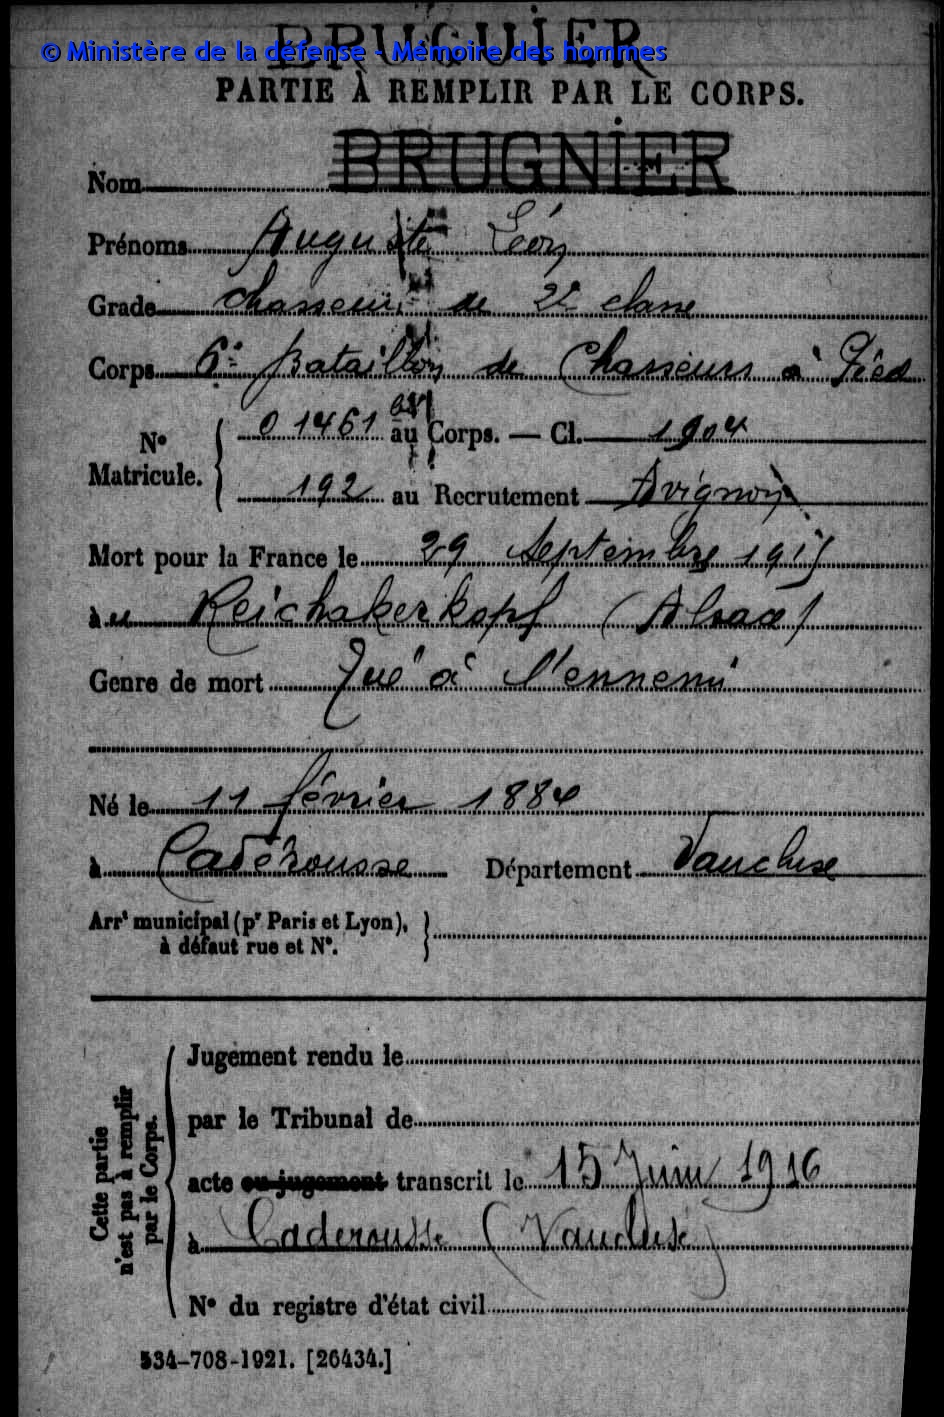 BRUGUIER
© Ministère de la défense - Mémoire des hommes
PARTIE À REMPLIR PAR LE CORPS.
Nom BRUGNIER
Prénoms Auguste Léon
Grade chasseur de 2e classe
Corps 6e Bataillon de Chasseurs à Pied
N° Matricule. { 01461 au Corps. — Cl. 1904
192 au Recrutement Avignon
Mort pour la France le 29 Septembre 1915
à u Reichakerkopf (Alsace)
Genre de mort Tué à l'ennemi
Né le 11 février 1884
à Cadérousse Département Vaucluse
Arrt municipal (pr Paris et Lyon), à défaut rue et N°. }
Cette partie n'est pas à remplir par le Corps.
Jugement rendu le
par le Tribunal de
acte ou jugement transcrit le 15 Juin 1916
à Caderousse (Vaucluse)
N° du registre d'état civil
534-708-1921. [26434.]